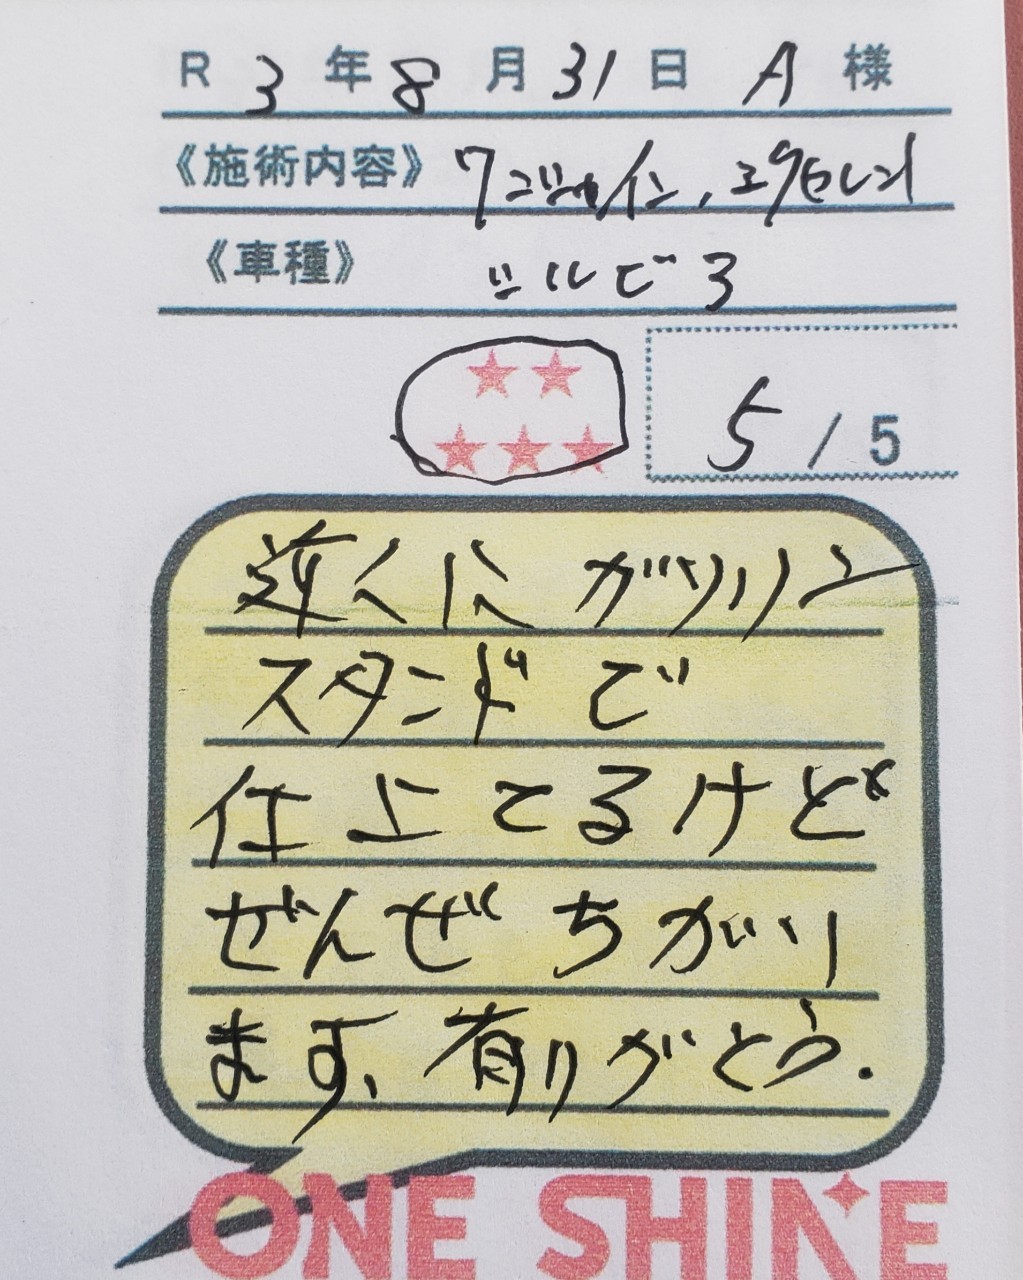 R 3 年 8 月 31 日 A 様
《施術内容》 ワンシャイン、エクセレント
《車種》 シルビア
5 / 5
近くに ガソリン
スタンドで
仕上てるけど
ぜんぜ ちがい
ます、有りがとう.
ONE SHINE